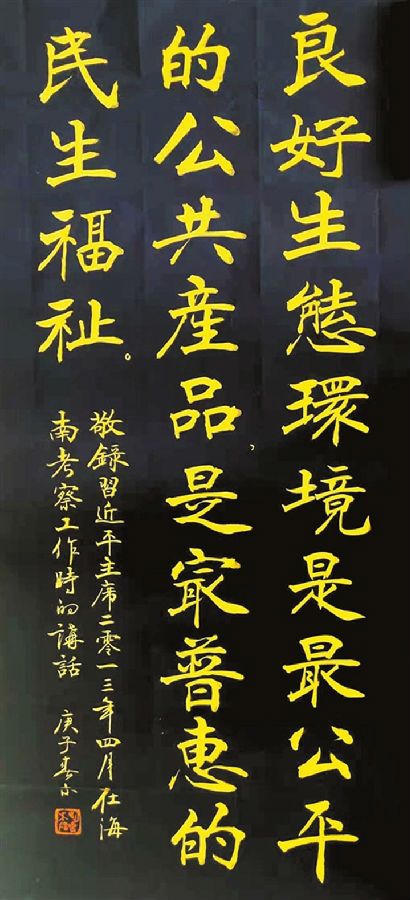 良好生態環境是最公平
的公共産品，是㝡普惠的
民生福祉。
敬録習近平主席二零一三年四月在海
南考察工作時的講話 庚子春